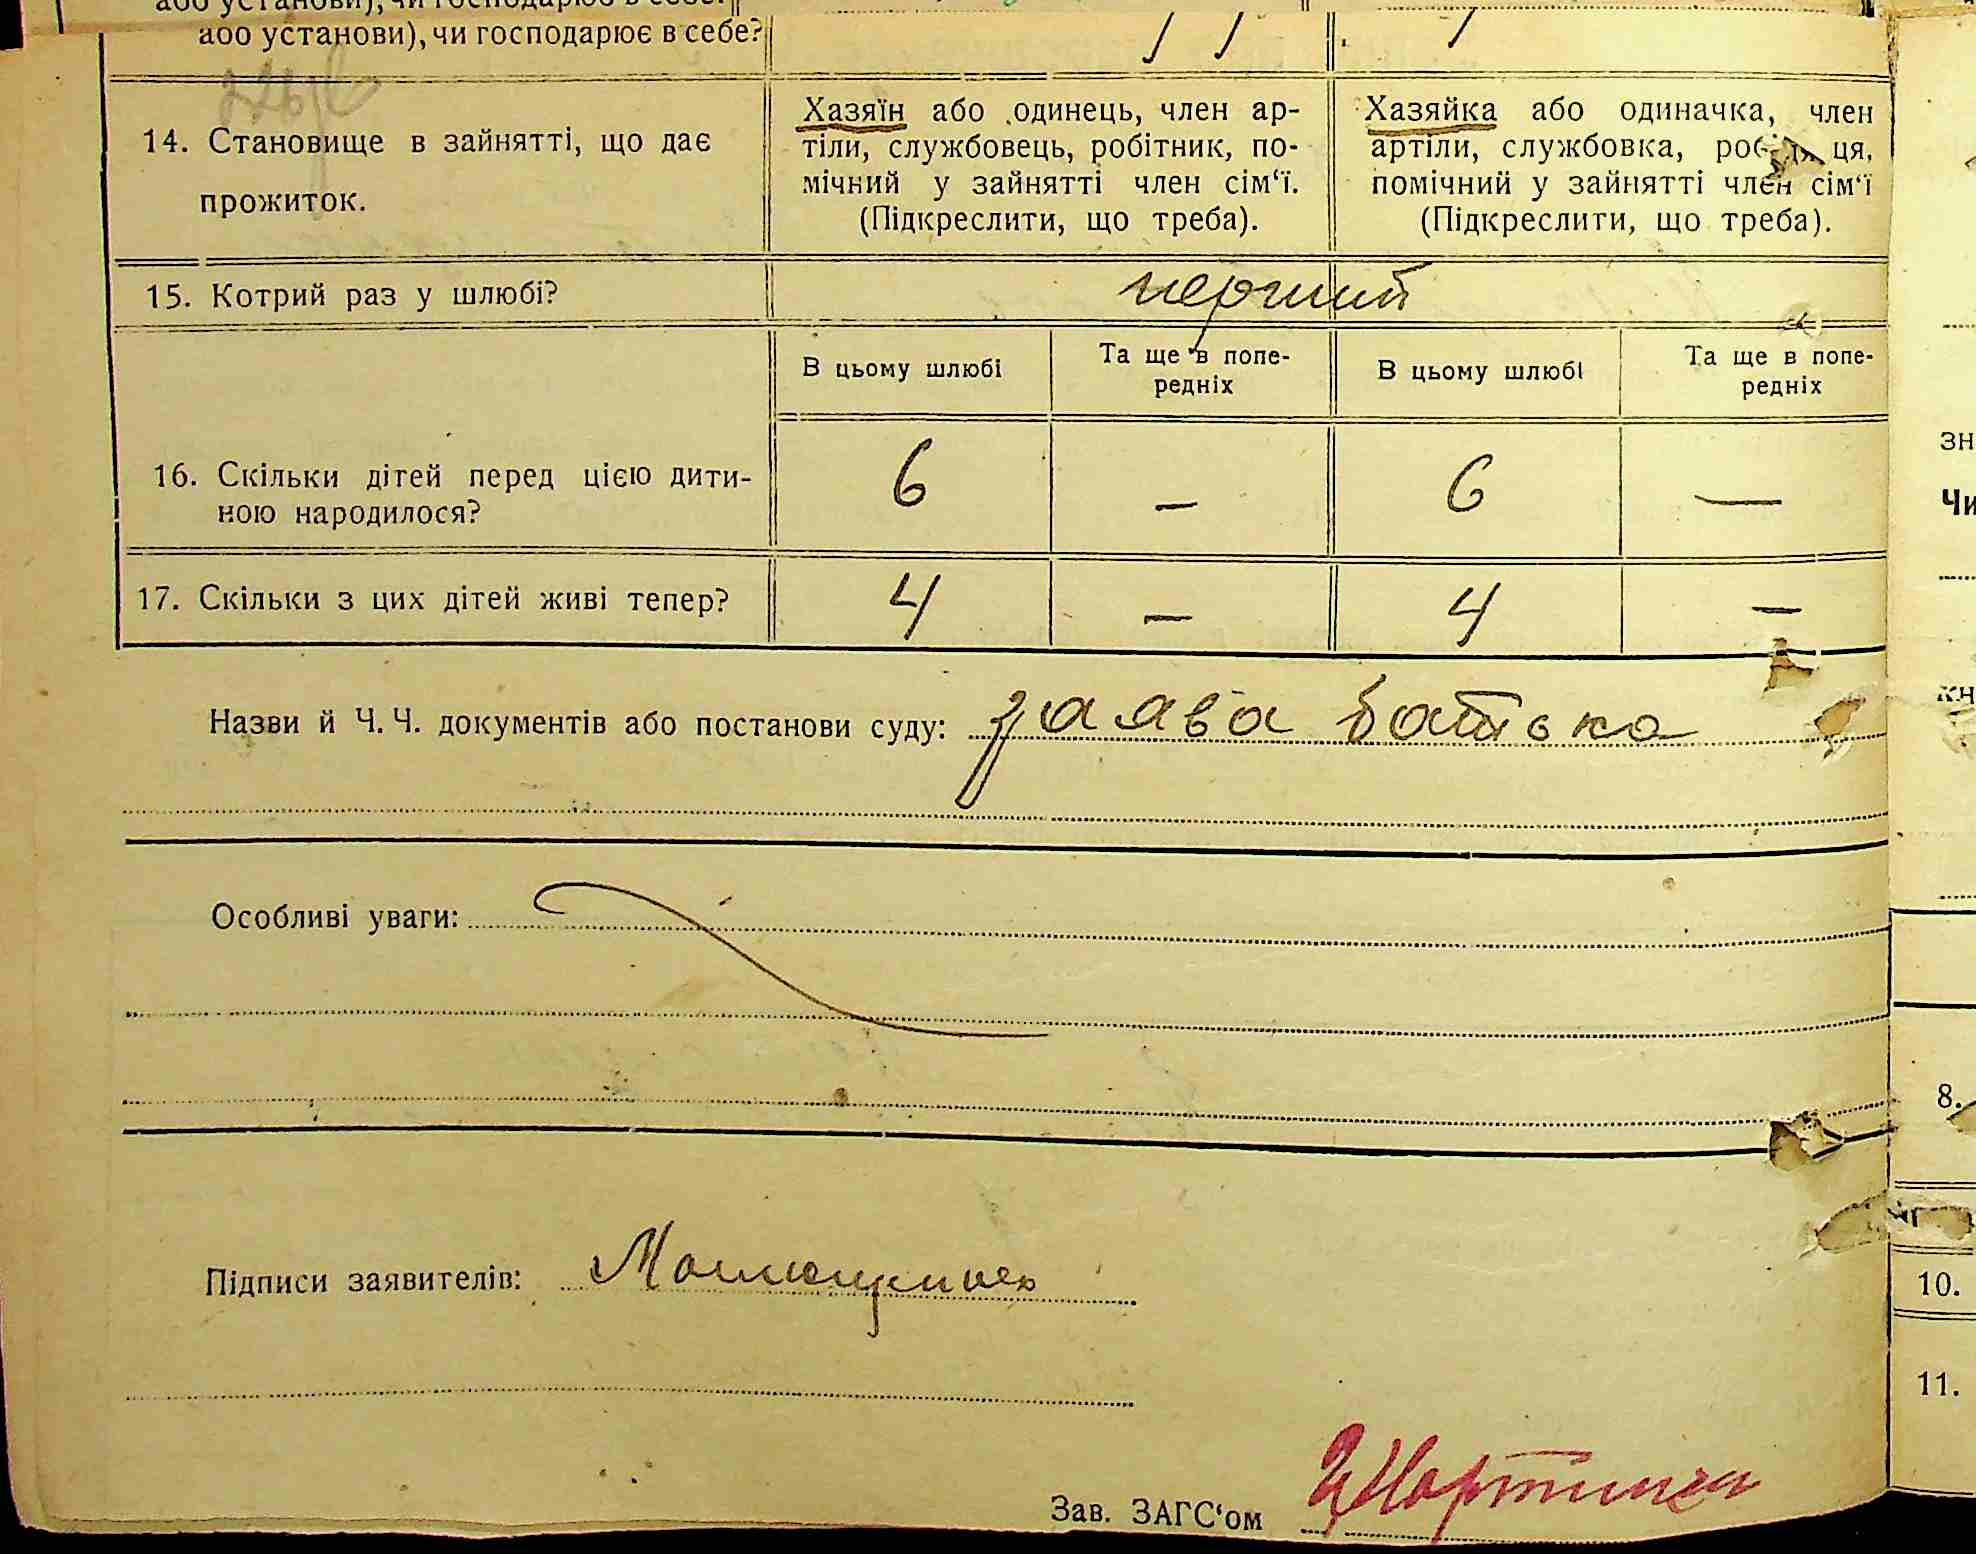 або установи), чи господарює в себе?
14. Становище в зайнятті, що дає
прожиток.
Хазяїн або одинець, член ар-
тіли, службовець, робітник, по-
мічний у зайнятті член сім‘ї.
(Підкреслити, що треба).
Хазяйка або одиначка, член
артіли, службовка, ця,
помічний у зайнятті член сім‘ї
(Підкреслити, що треба).
15. Котрий раз у шлюбі?
перший
В цьому шлюбі
Та ще в попе-
редніх
В цьому шлюбі
Та ще в попе-
редніх
16. Скільки дітей перед цією дити-
ною народилося?
6 — 6 —
17. Скільки з цих дітей живі тепер?
4 — 4 —
Назви й Ч. Ч. документів або постанови суду: заява батька
Особливі уваги:
Підписи заявителів:
Зав. ЗАГС‘ом
зн
Чи
кн
8.
10.
11.